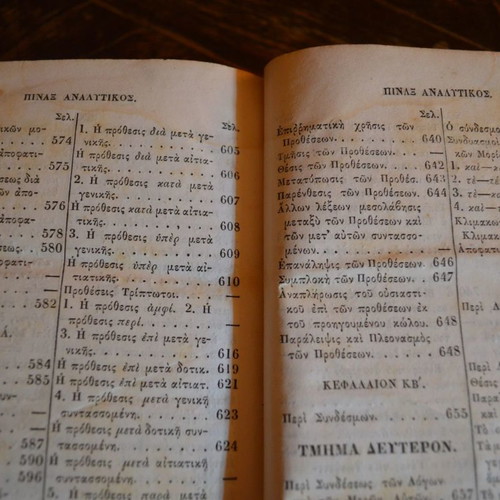 ΠΙΝΑΞ ΑΝΑΛΥΤΙΚΟΣ.
Σελ.
574
575
576
578
580
582
584
585
587
590
596
Σελ.
1. Ἡ πρόθεσις διὰ μετὰ γε-
νικῆς. 605
Ἡ πρόθεσις διὰ μετὰ αἰτια-
τικῆς. 606
2. Ἡ πρόθεσις κατὰ μετὰ
γενικῆς. 607
Ἡ πρόθεσις κατὰ μετὰ αἰτια-
τικῆς. 608
3. Ἡ πρόθεσις ὑπὲρ μετὰ
γενικῆς. 609
Ἡ πρόθεσις ὑπὲρ μετὰ αἰ-
τιατικῆς. 610
Προθέσεις Τρίπτωτοι. —
1. Ἡ πρόθεσις ἀμφί. 2. Ἡ
πρόθεσις περί. —
3. Ἡ πρόθεσις ἐπὶ μετὰ γε-
νικῆς. 616
Ἡ πρόθεσις ἐπὶ μετὰ δοτικ. 619
Ἡ πρόθεσις ἐπὶ μετὰ αἰτιατ. 621
4. Ἡ πρόθεσις μετὰ γενικῇ
συντασσομένη. 623
Ἡ πρόθεσις μετὰ δοτικῇ συν-
τασσομένη. 624
Ἡ πρόθεσις μετὰ αἰτιατικῇ
συντασσομένη.
5. Ἡ πρόθεσις παρὰ μετὰ
ΠΙΝΑΞ ΑΝΑΛΥΤΙΚΟΣ.
Σελ.
Ἐπιῤῥηματικὴ χρῆσις τῶν
Προθέσεων. 640
Τμῆσις τῶν Προθέσεων. —
Θέσις τῶν Προθέσεων. 642
Μετατύπωσις τῶν Προθέσ. 643
Παρένθεσις τῶν Προθέσεων. 644
Ἄλλων λέξεων μεσολάβησις
μεταξὺ τῶν Προθέσεων καὶ
τῶν μετ' αὐτῶν συντασσο-
μένων. —
Ἐπανάληψις τῶν Προθέσεων. 646
Συμπλοκὴ τῶν Προθέσεων. 647
Ἀναπλήρωσις τοῦ οὐσιαστι-
κοῦ ἐπὶ τῶν προθέσεων ἐκ
τοῦ προηγουμένου κώλου. 648
Παράλειψις καὶ Πλεονασμὸς
τῶν Προθέσεων. 648
ΚΕΦΑΛΑΙΟΝ ΚΒʹ.
Περὶ Συνδέσμων. 655
ΤΜΗΜΑ ΔΕΥΤΕΡΟΝ.
Περὶ Συνθέσεως τῶν Λόγων
657
Ὁ σύνδεσμο
Συνδυασμοὶ
κῶν Μορί
1. καὶ—
2. τὲ—
3. τὲ—κ
4. καὶ—
Κλιμακω
Κλίμακ
Ἀποφατι